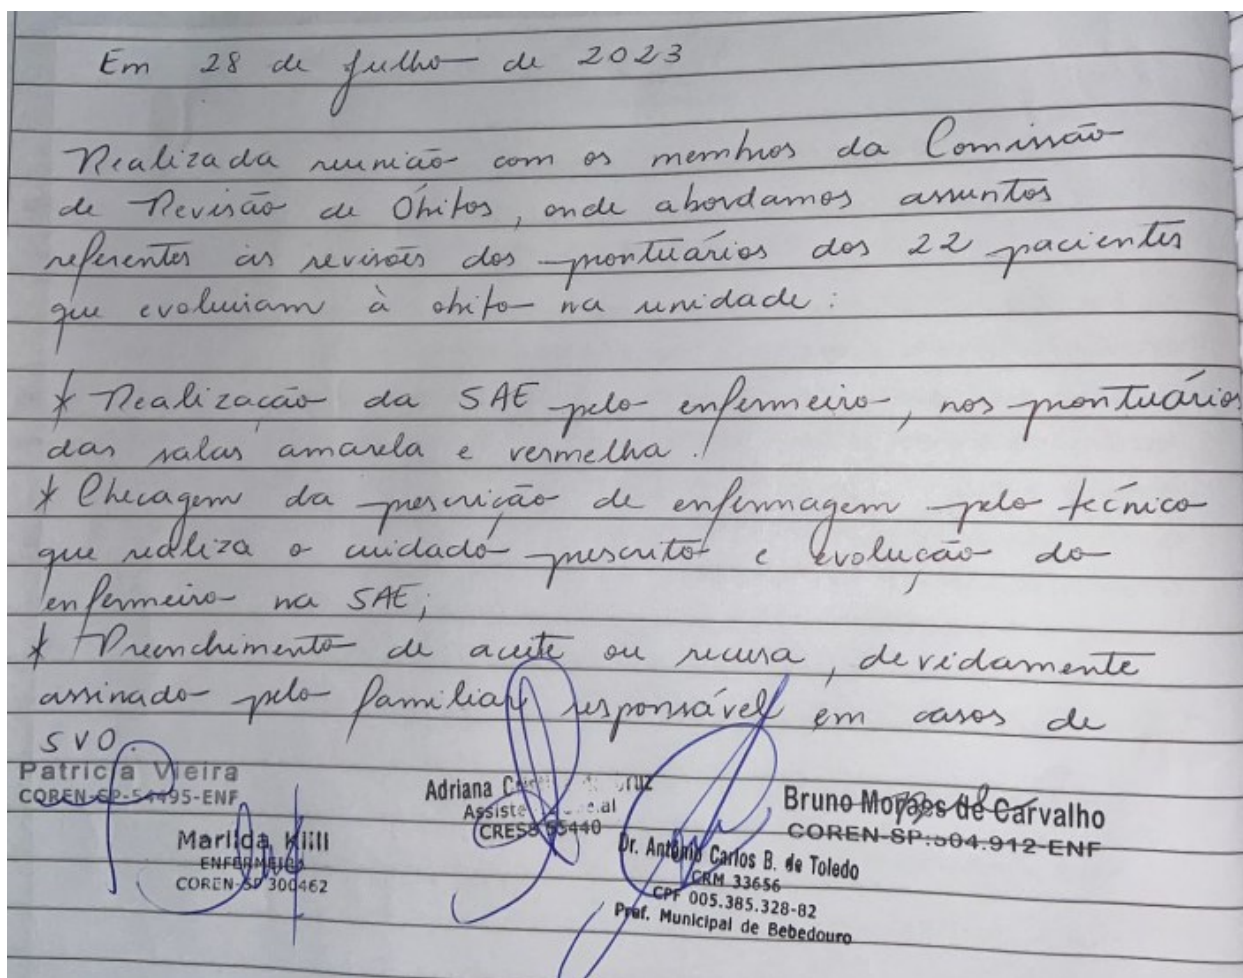 Em 28 de Julho de 2023
Realizada reunião com os membros da Comissão
de Revisão de Óbitos, onde abordamos assuntos
referentes às revisões dos prontuários dos 22 pacientes
que evoluiam à obito na unidade:
* Realização da SAE pelo enfermeiro, nos prontuários
das salas amarela e vermelha.
* Checagem da prescrição de enfermagem pelo técnico
que realiza o cuidado prescrito e evolução do
enfermeiro na SAE;
* Preenchimento de aceite ou recusa, devidamente
assinado pelo familiar responsável em casos de
SVO.
Patricia Vieira
COREN-SP-54495-ENF
Marilda Klill
ENFERMEIRA
COREN-SP 300462
Adriana
CRESS 55440
Bruno Moraes de Carvalho
COREN-SP:504.912-ENF
Dr. Antônio Carlos B. de Toledo
CRM 33656
CPF 005.385.328-82
Pref. Municipal de Bebedouro